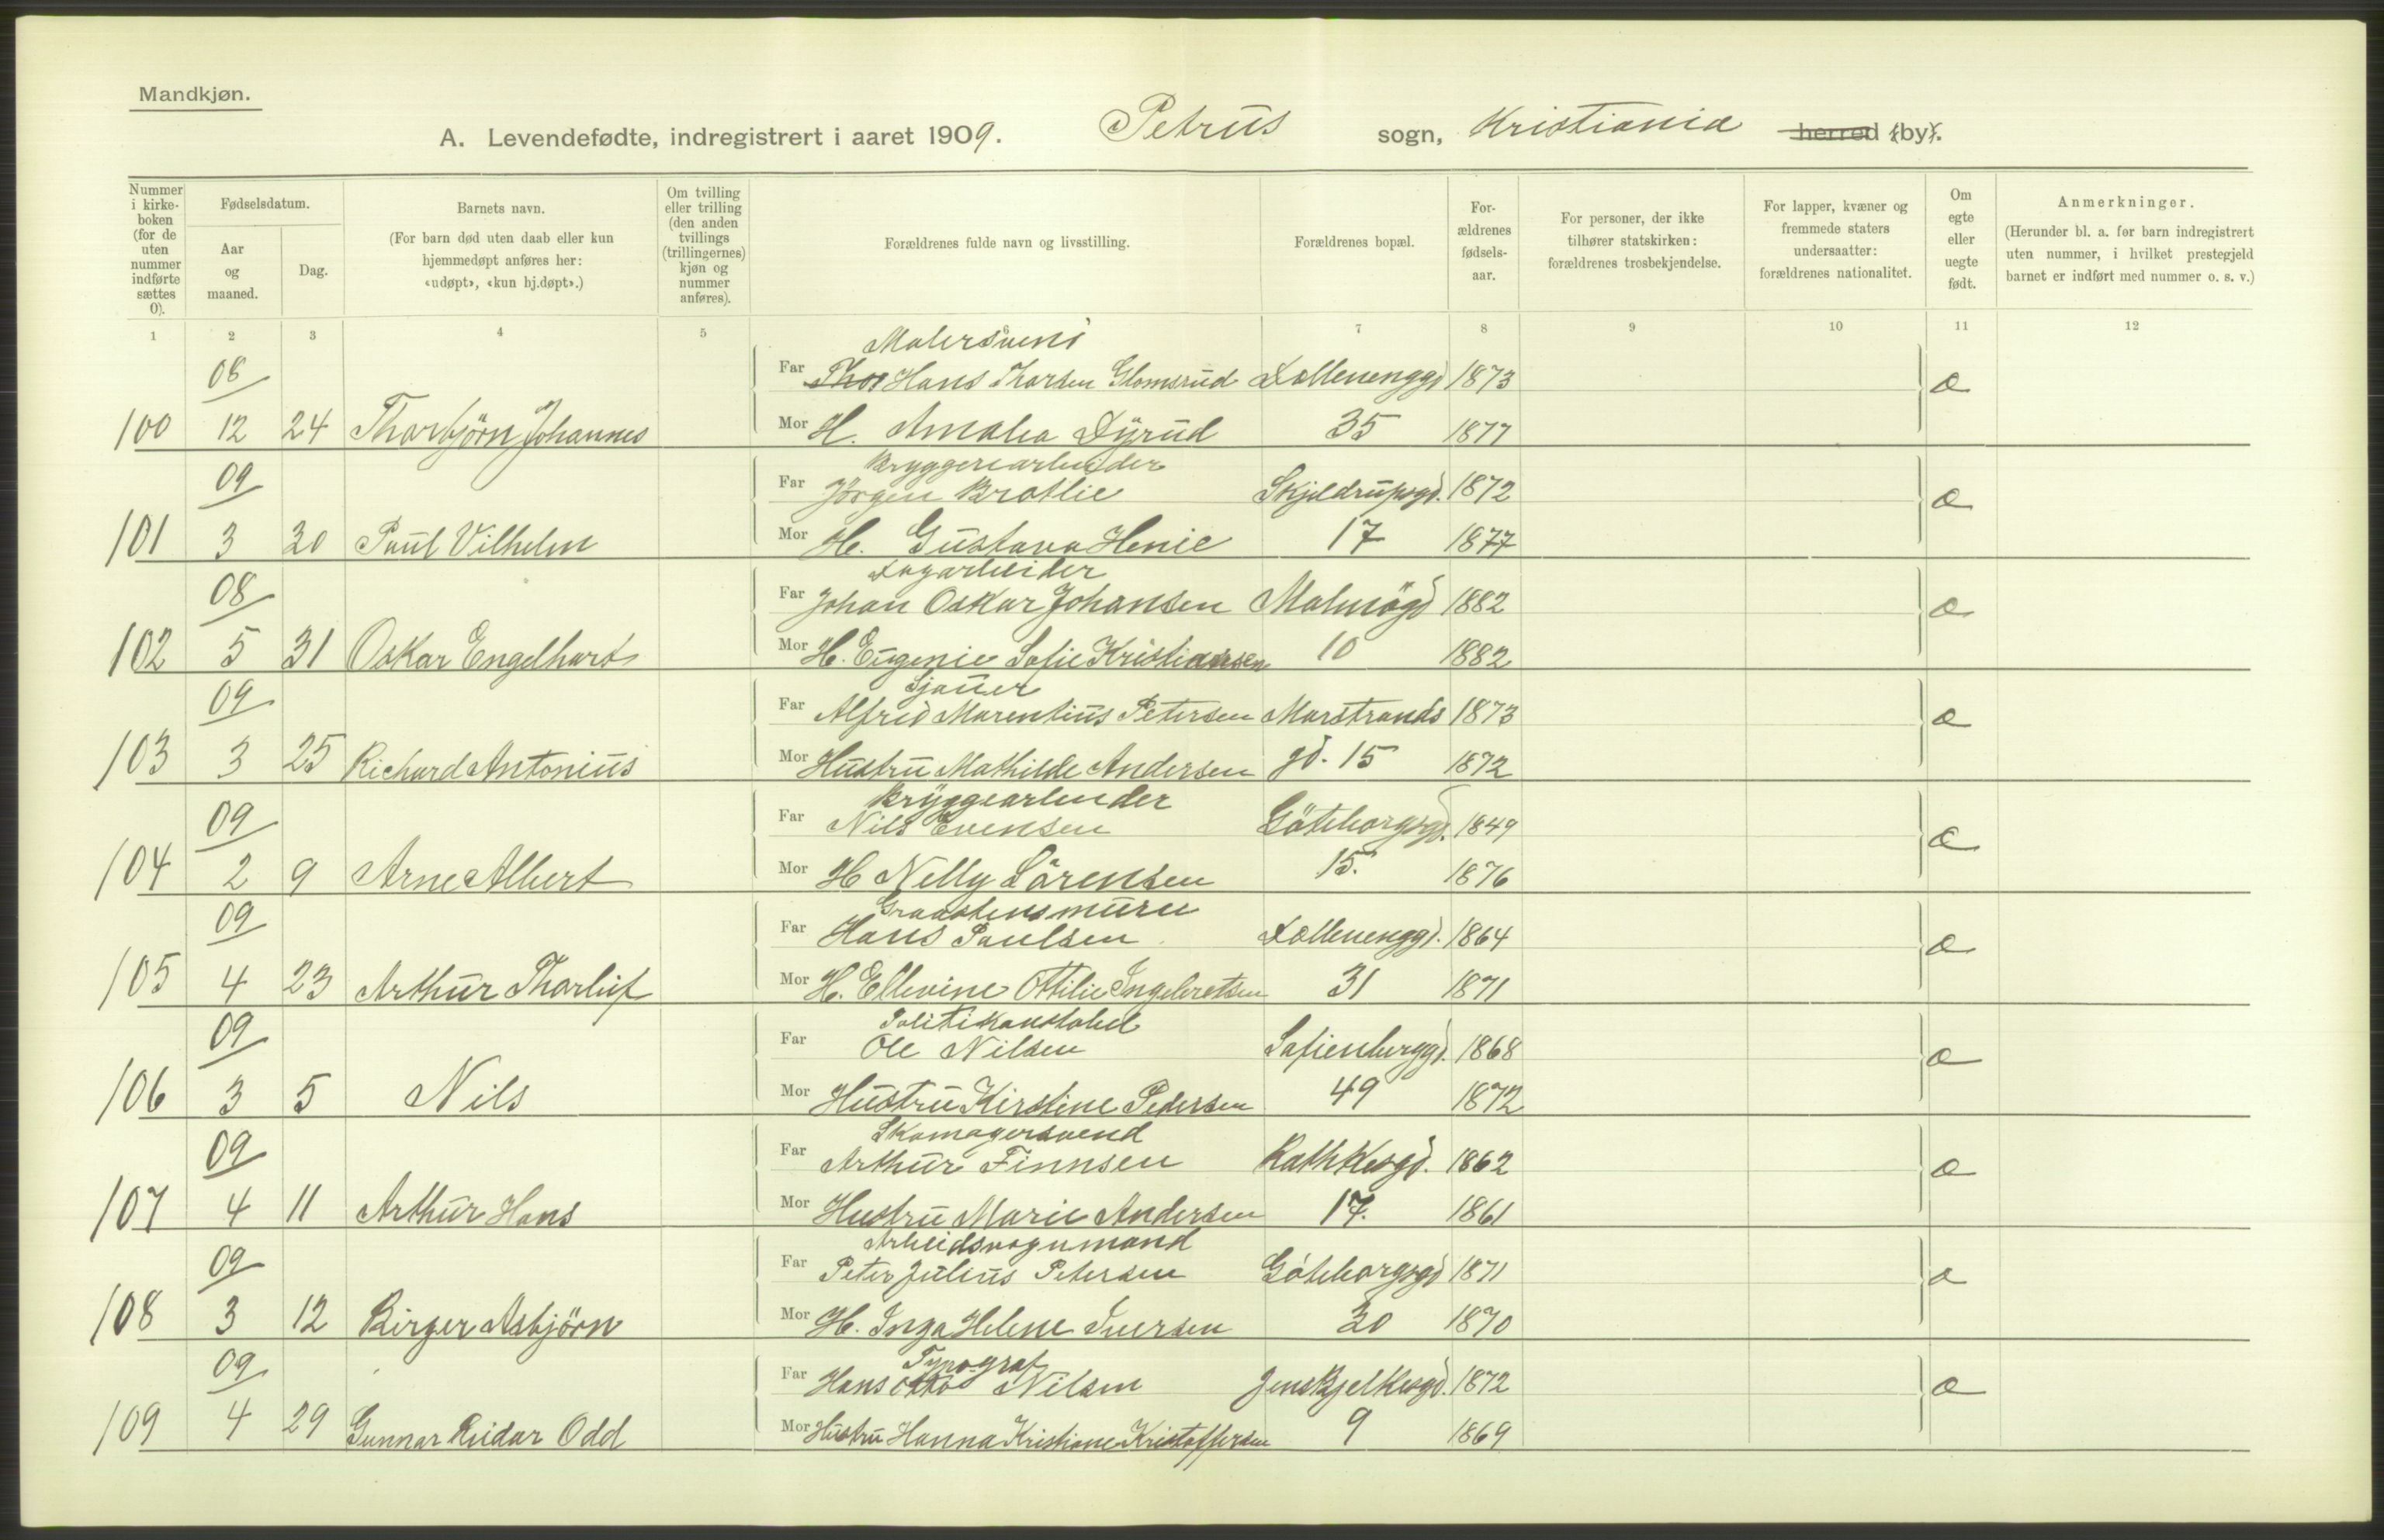 Mandkjøn.
A. Levendefødte, indregistrert i aaret 1909. Petrus sogn, Kristiania herred (by).
Nummer i kirke-boken (for de uten nummer indførte sættes 0).
Fødselsdatum.
Aar og maaned.
Dag.
Barnets navn.
(For barn død uten daab eller kun hjemmedøpt anføres her: «udøpt», «kun hj.døpt».)
Om tvilling eller trilling (den anden tvillings (trillingernes) kjøn og nummer anføres).
Forældrenes fulde navn og livsstilling.
Forældrenes bopæl.
For-ældrenes fødsels-aar.
For personer, der ikke tilhører statskirken: forældrenes trosbekjendelse.
For lapper, kvæner og fremmede staters undersaatter: forældrenes nationalitet.
Om egte eller uegte født.
Anmerkninger.
(Herunder bl. a. for barn indregistrert uten nummer, i hvilket prestegjeld barnet er indført med nummer o. s. v.)
1 2 3 4 5 6 7 8 9 10 11 12
Malersvend
08 Far Thor Hans Thorsen Glomsrud Dællenenggd 1873 e
100 12 24 Thorbjörn Johannes Mor H. Amalia Dyrud 35 1877
Bryggeriarbeider
09 Far Jörgen Bratlie Skjeldrupsgd. 1872 e
101 3 30 Paul Vilhelm Mor H. Gustava Henie 17 1877
Dagarbeider
08 Far Johan Oskar Johansen Malmögd 1882 e
102 5 31 Oskar Engelhart Mor H. Eugenie Sofie Kristiansen 10 1882
Sjauer
09 Far Alfred Marentius Petersen Marstrands 1873 e
103 3 25 Richard Antonius Mor Hustru Mathilde Andersen gd. 15 1872
Bryggearbeider
09 Far Nils Evensen Göteborgsgd. 1849 e
104 2 9 Arne Albert Mor H Nelly Sörensen 15. 1876
Graastensmurer
09 Far Hans Paulsen Dællenenggd. 1864 e
105 4 23 Arthur Thorleif Mor H. Ellevine Ottilie Ingebretsen 31 1871
Politikonstabel
09 Far Ole Nilsen Sofienberggd. 1868 e
106 3 5 Nils Mor Hustru Kirstine Pedersen 49 1872
Skomagersvend
09 Far Arthur Finnsen Rathkesgd. 1862 e
107 4 11 Arthur Hans Mor Hustru Marie Andersen 17. 1861
Arbeidsvognmand
09 Far Peter Julius Petersen Göteborgsgd 1871 e
108 3 12 Birger Asbjörn Mor H. Inga Helene Iversen 30 1870
Typograf
09 Far Hans Otto Nilsen Jens Bjelkesgd. 1872 e
109 4 29 Gunnar Reidar Odd Mor Hustru Hanna Kristiane Kristoffersen 9 1869